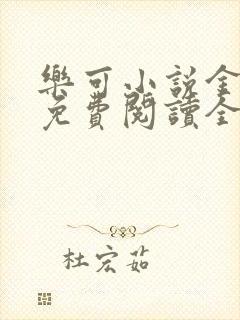 樂可小说全
免費閱讀全
杜宏茹